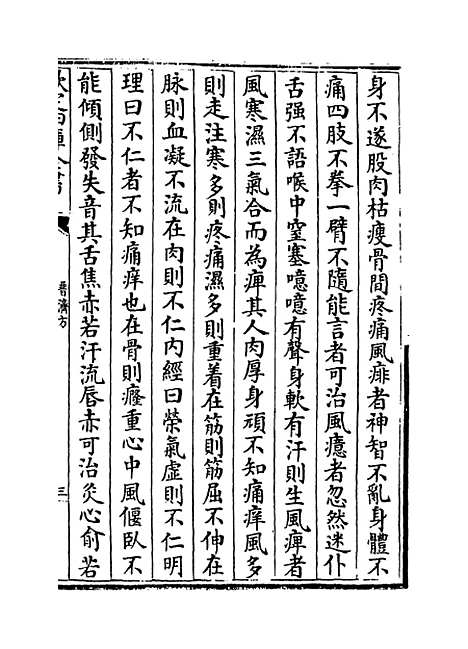 身不遂股肉枯瘦骨間疼痛風痱者神智不亂身體不
痛四肢不拳一臂不隨能言者可治風癔者忽然迷仆
舌强不語喉中窒塞噫噫有聲身軟有汗則生風痺者
風寒濕三氣合而為痺其人肉厚身頑不知痛痒風多
則走注寒多則疼痛濕多則重着在筋則筋屈不伸在
脉則血凝不流在肉則不仁内經曰榮氣虚則不仁明
理曰不仁者不知痛痒也在骨則癮重心中風偃臥不
能傾側發失音其舌焦赤若汗流唇赤可治灸心俞若
普濟方
三